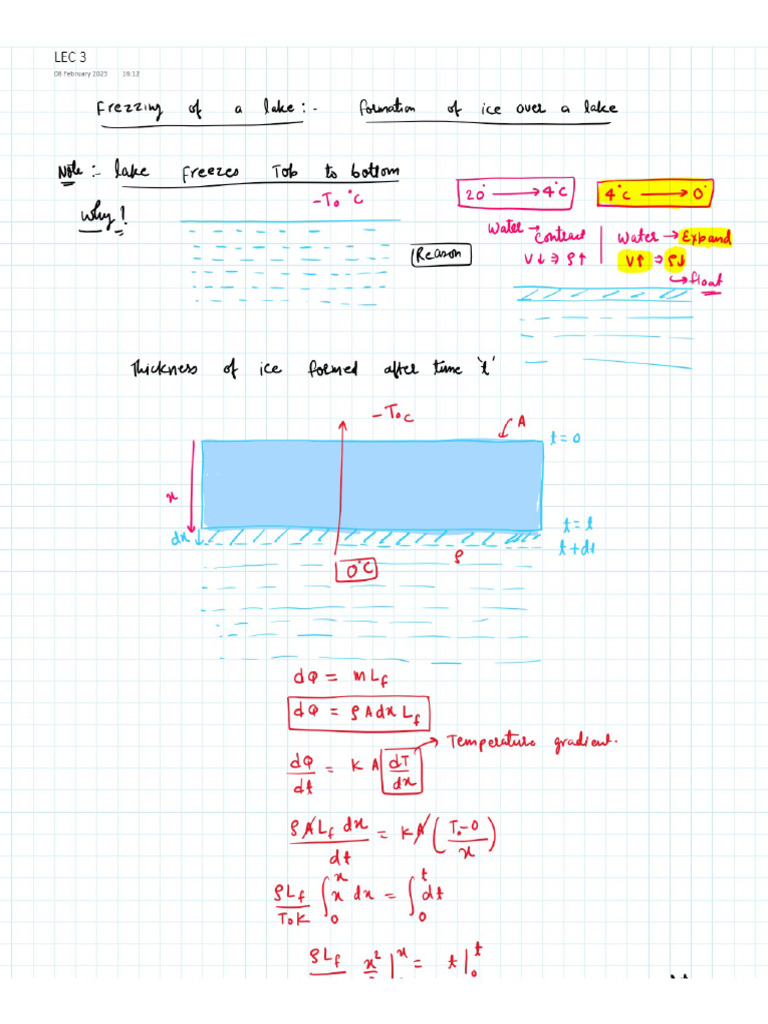 LEC 3
08 February 2025 16:12
Frezzing of a lake:- formation of ice over a lake
Note:- lake freezes Top to bottom
Why!
-T₀ °C
20° → 4°C
4°C → 0°
Reason
Water → Contract
V↓ ⇒ ρ↑
Water → Expand
V↑ ⇒ ρ↓
↪ float
Thickness of ice formed after time 't'
-T₀c
A
t = 0
x
dx
t = t
t + dt
ρ
0°C
dQ = mLf
dQ = ρAdx Lf
dQ/dt = K A dT/dx → Temperature gradient.
ρALf dx/dt = KA (T₀-0/x)
ρLf/T₀K ∫₀ˣ x dx = ∫₀ᵗ dt
ρLf x² |ˣ = t |₀ᵗ